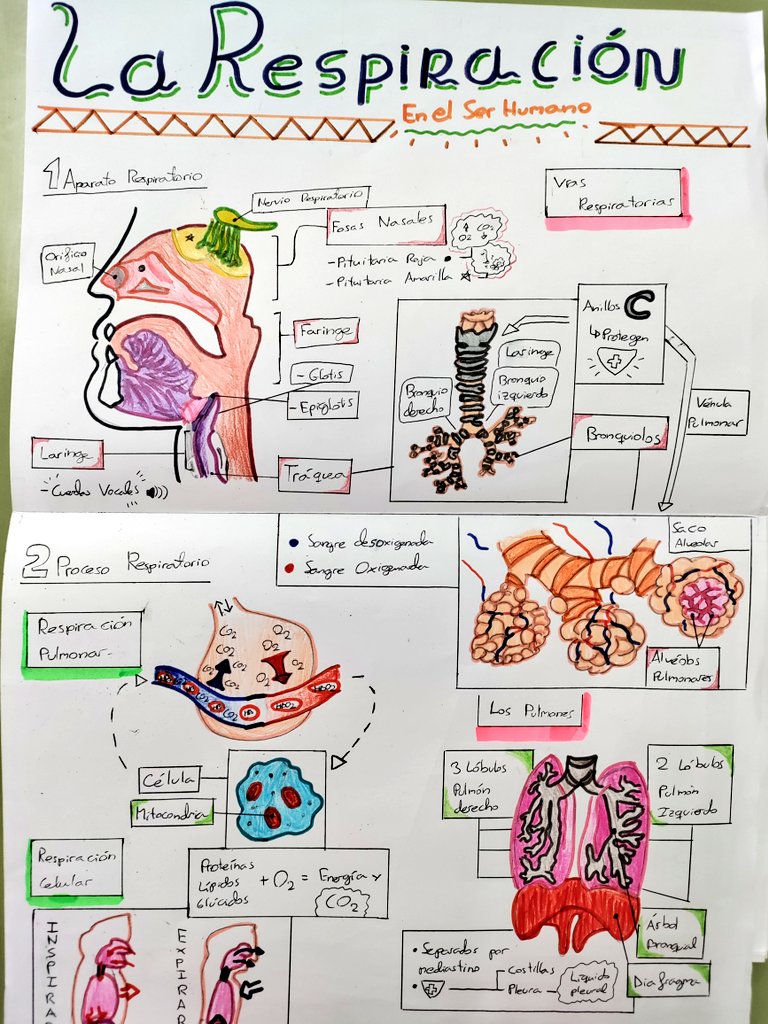 La Respiración
En el Ser Humano
1 Aparato Respiratorio
Vías
Respiratorias
Nervio Respiratorio
Fosas Nasales
CO2
O2
- Pituitaria Roja
- Pituitaria Amarilla
Orificio
Nasal
Faringe
- Glotis
- Epiglotis
Laringe
- Cuerdas Vocales
Tráquea
Anillos C
Protegen
Laringe
Bronquio
derecho
Bronquio
izquierdo
Bronquiolos
Vénula
Pulmonar
2 Proceso Respiratorio
• Sangre desoxigenada
• Sangre Oxigenada
Saco
Alveolar
Alvéolos
Pulmonares
Respiración
Pulmonar
CO2 O2
CO2 O2
CO2 CO2 O2 O2
CO2
Célula
Mitocondria
Respiración
Celular
Proteínas
Lípidos
Glúcidos
+ O2 = Energía y
CO2
Los Pulmones
3 Lóbulos
Pulmón
derecho
2 Lóbulos
Pulmón
Izquierdo
Árbol
Bronquial
Diafragma
• Separados por
mediastino
Costillas
Pleura
Líquido
pleural
INSPIRAR
EXPIRAR